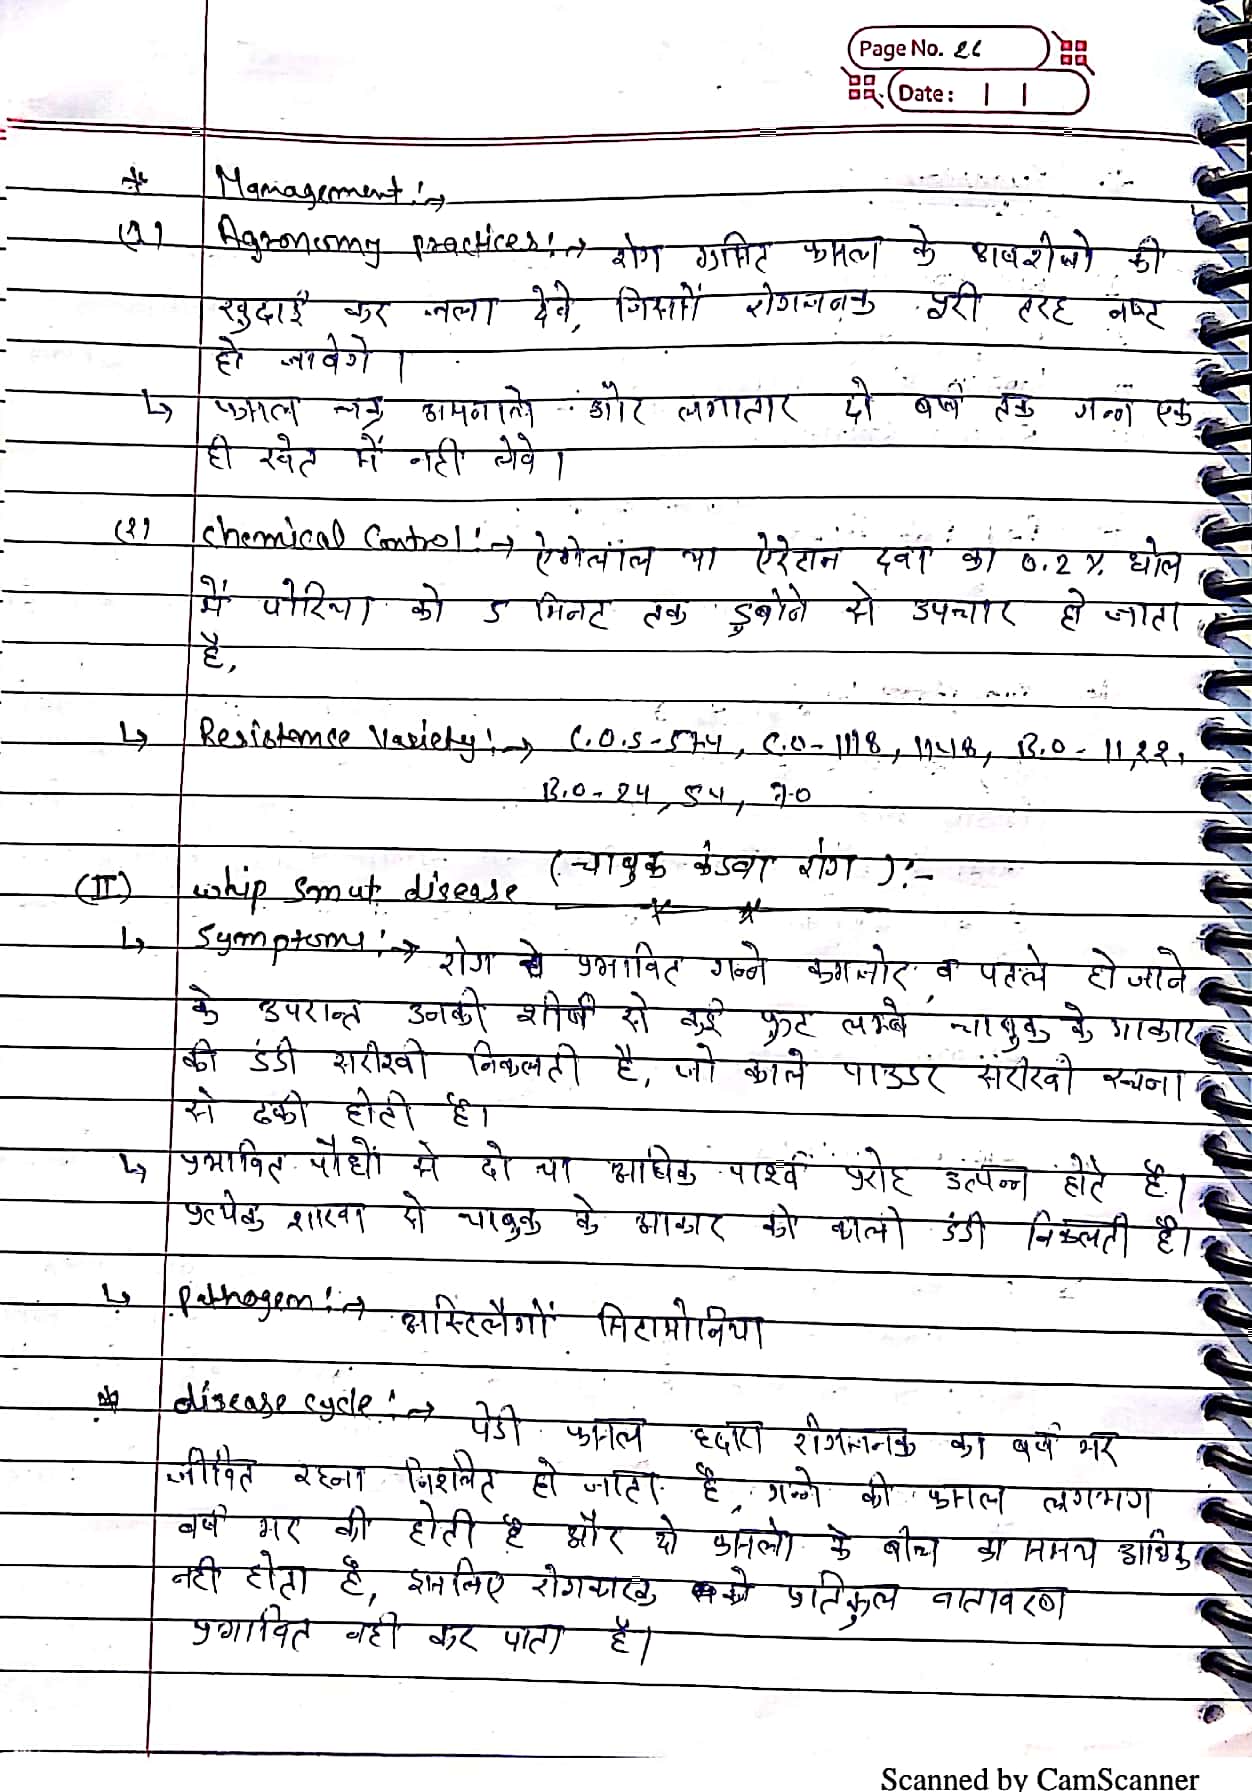 Page No. 26
Date: | |
* Management :→
(1) Agronomy practices :→ रोग ग्रसित फसल के अवशेषो की
खुदाई कर जला देवे, जिससे रोगजनक पूरी तरह नष्ट
हो जावेगे ।
↳ फसल चक्र अपनाले और लगातार दो वर्ष तक गन्न एक
ही खेत में नही लेवे ।
(2) Chemical Control :→ ऐगेलाल या ऐरेटान दवा का 0.2 % घोल
में पोरिया को 5 मिनट तक डुबोने से उपचार हो जाता
है,
↳ Resistence Variety :→ C.O.S-574, C.O-1118, 1148, B.O - 11, 22,
B.O - 24, 54, 70
(II) Whip Smut disease (चाबुक कंडवा रोग ):-
↳ Symptoms :→ रोग से प्रभावित गन्ने कमजोर व पतले हो जाने
के उपरान्त उनकी शीर्ष से कई फुट लम्बे चाबुक के आकार
की डंडी सरीखी निकलती है, जो काले पाउडर सरीखी रचना
से ढकी होती है।
↳ प्रभावित पौधों से दो या अधिक पार्श्व प्ररोह उत्पन्न होते है।
प्रत्येक शाखा से चाबुक के आकार की काली डंडी निकलती है।
↳ Pathogen :→ अस्टिलैगों सिटामोनिया
* disease cycle :→ पेडी फसल द्वारा रोगजनक का वर्ष भर
जीवित रहना निश्चित हो जाता है, गन्ने की फसल लगभग
वर्ष भर की होती है और दो फसलो के बीच का समय अधिक
नही होता है, इसलिए रोगकारक को प्रतिकुल वातावरण
प्रभावित नही कर पाता है।
Scanned by CamScanner